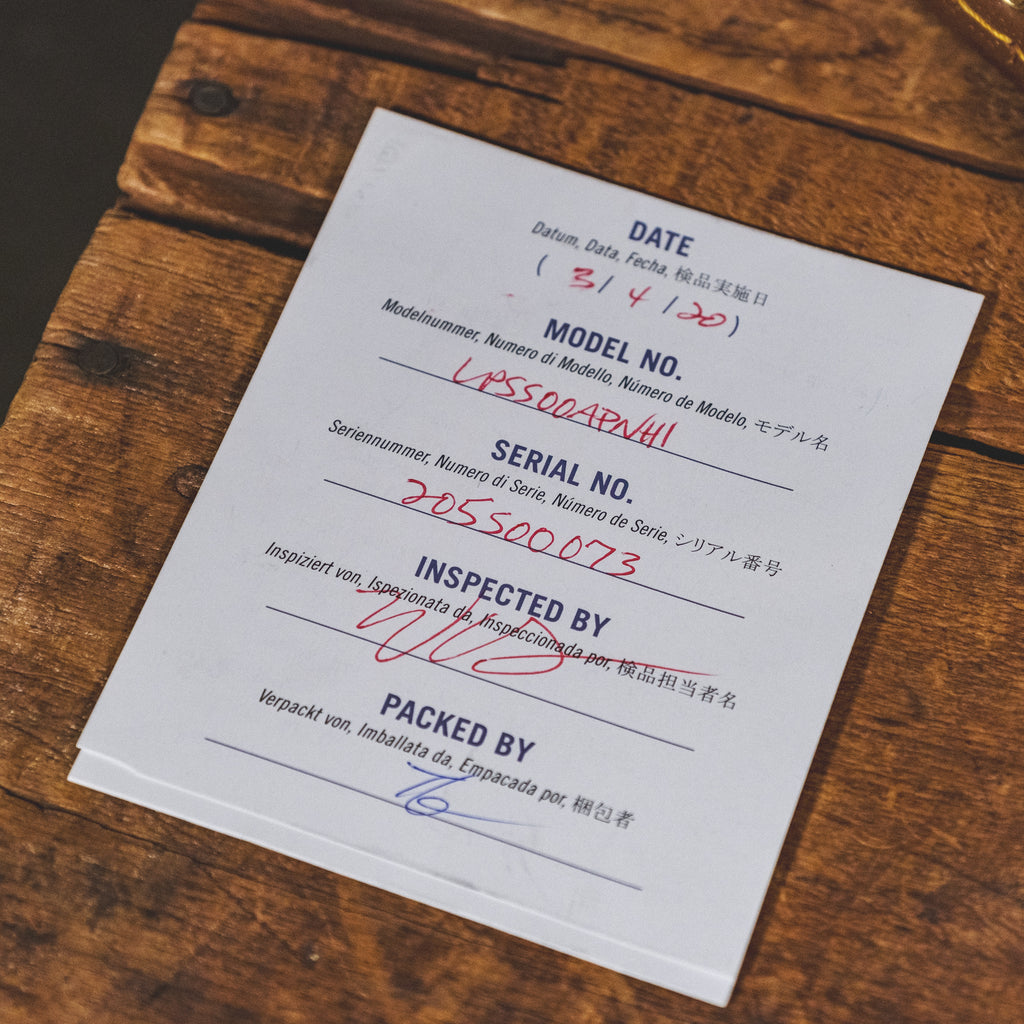 DATE
Datum, Data, Fecha, 検品実施日
( 3 / 4 / 20 )
MODEL NO.
Modelnummer, Numero di Modello, Número de Modelo, モデル名
LPSS00APNH1
SERIAL NO.
Seriennummer, Numero di Serie, Número de Serie, シリアル番号
205500073
INSPECTED BY
Inspiziert von, Ispezionata da, Inspeccionada por, 検品担当者名
PACKED BY
Verpackt von, Imballata da, Empacada por, 梱包者